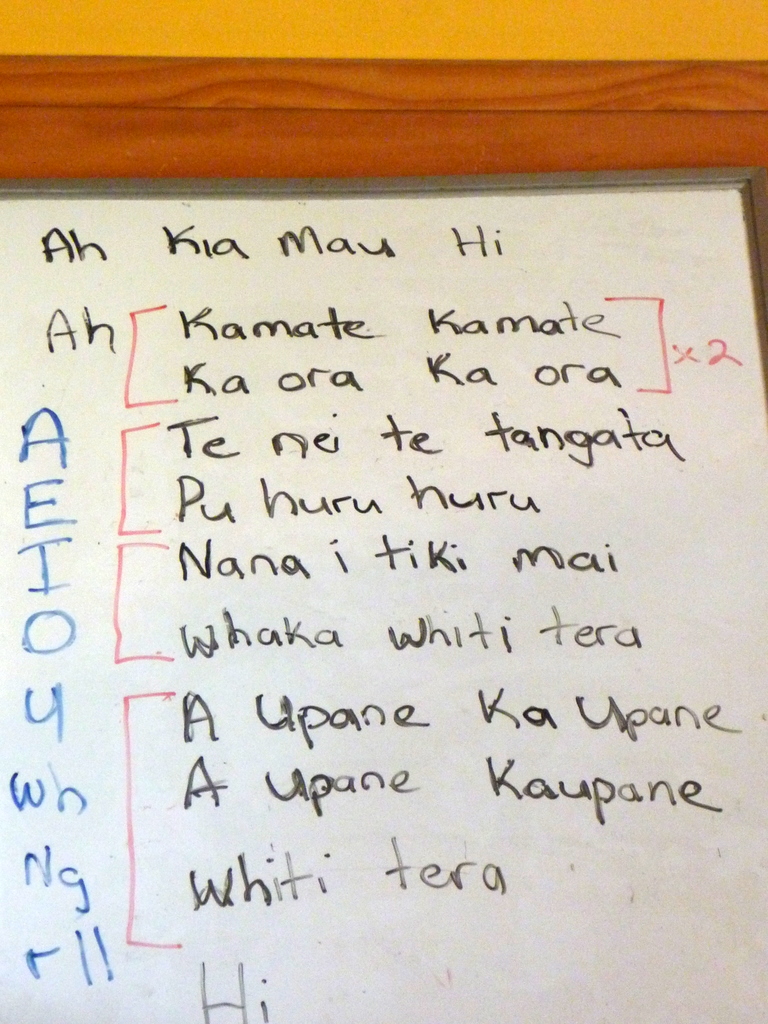 Ah Kia Mau Hi
Ah [ Kamate Kamate
Ka ora Ka ora ] x2
A [ Te nei te tangata
E Pu huru huru
I [ Nana i tiki mai
O Whaka whiti tera
U [ A Upane Ka Upane
Wh A upane Kaupane
Ng Whiti tera
r ll
Hi